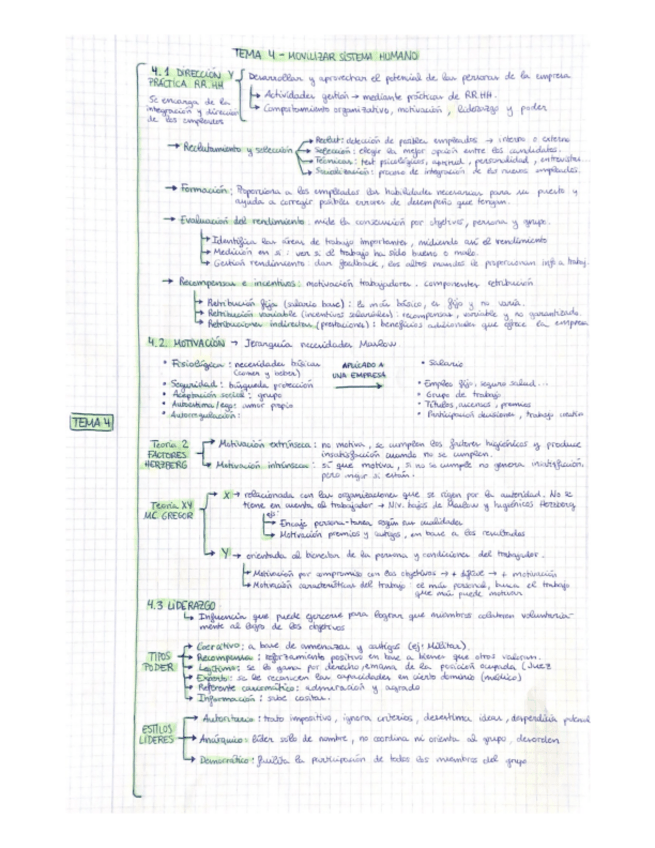 TEMA 4 - MOVILIZAR SISTEMA HUMANO
4.1 DIRECCIÓN Y PRÁCTICA RR.HH
Se encarga de la integración y dirección de los empleados
Desarrollar y aprovechar el potencial de las personas de la empresa
Actividades gestión → mediante prácticas de RR.HH.
Comportamiento organizativo, motivación, liderazgo y poder
→ Reclutamiento y selección
Reclut: detección de posibles empleados → interno o externo
Selección: elegir la mejor opción entre los candidatos.
Técnicas: test psicológicos, aptitud, personalidad, entrevistas...
Socialización: proceso de integración de los nuevos empleados.
→ Formación: Proporciona a los empleados las habilidades necesarias para su puesto y
ayuda a corregir posibles errores de desempeño que tengan.
→ Evaluación del rendimiento: mide la consecución por objetivos, persona y grupo.
Identifica las áreas de trabajo importantes, midiendo así el rendimiento
Medición en sí: ver si el trabajo ha sido bueno o malo.
Gestión rendimiento: dar feedback, los altos mandos le proporcionan info a trabaj.
→ Recompensas e incentivos: motivación trabajadores. componentes retribución.
Retribución fija (salario base): la más básica, es fijo y no varía.
Retribución variable (incentivos salariales): recompensa, variable y no garantizada.
Retribuciones indirectas (prestaciones): beneficios adicionales que ofrece la empresa
4.2. MOTIVACIÓN → Jerarquía necesidades Maslow
• Fisiológica: necesidades básicas (comer y beber)
• Seguridad: búsqueda protección
• Aceptación social: grupo
• Autoestima/ego: amor propio
• Autorregulación:
APLICADO A UNA EMPRESA
• Salario
• Empleo fijo, seguro salud...
• Grupo de trabajo
• Títulos, ascensos, premios
• Participación decisiones, trabajo creativo
TEMA 4
Teoría 2 FACTORES HERZBERG
Motivación extrínseca: no motiva, se cumplen los factores higiénicos y produce
insatisfacción cuando no se cumplen.
Motivación intrínseca: sí que motiva, si no se cumple no genera insatisfacción,
pero mejor si están.
Teoría XY MC GREGOR
X → relacionada con las organizaciones que se rigen por la autoridad. No se
tiene en cuenta al trabajador → Niv. bajos de Maslow y higiénicos Herzberg
ej:
Encaje persona-tarea según sus cualidades
Motivación premios y castigos, en base a los resultados
Y → orientada al bienestar de la persona y condiciones del trabajador.
Motivación por compromiso con los objetivos → + → + motivación
Motivación características del trabajo: el más personal, busca el trabajo
que más puede motivar
4.3 LIDERAZGO
Influencia que puede ejercerse para lograr que miembros colaboren voluntaria-
mente al logro de los objetivos
TIPOS PODER
Coercitivo: a base de amenazas y castigos (ej: Militar).
Recompensa: reforzamiento positivo en base a bienes que otros valoran.
Legítimo: se lo gana por derecho, emana de la posición ocupada (Juez
Experto: se le reconocen las capacidades en cierto dominio (médico)
Referente carismático: admiración y agrado
Información: sabe cositas.
ESTILOS LÍDERES
Autoritario: trato impositivo, ignora criterios, desestima ideas, desperdicia potencial
Anárquico: líder solo de nombre, no coordina ni orienta al grupo, desorden
Democrático: facilita la participación de todos los miembros del grupo